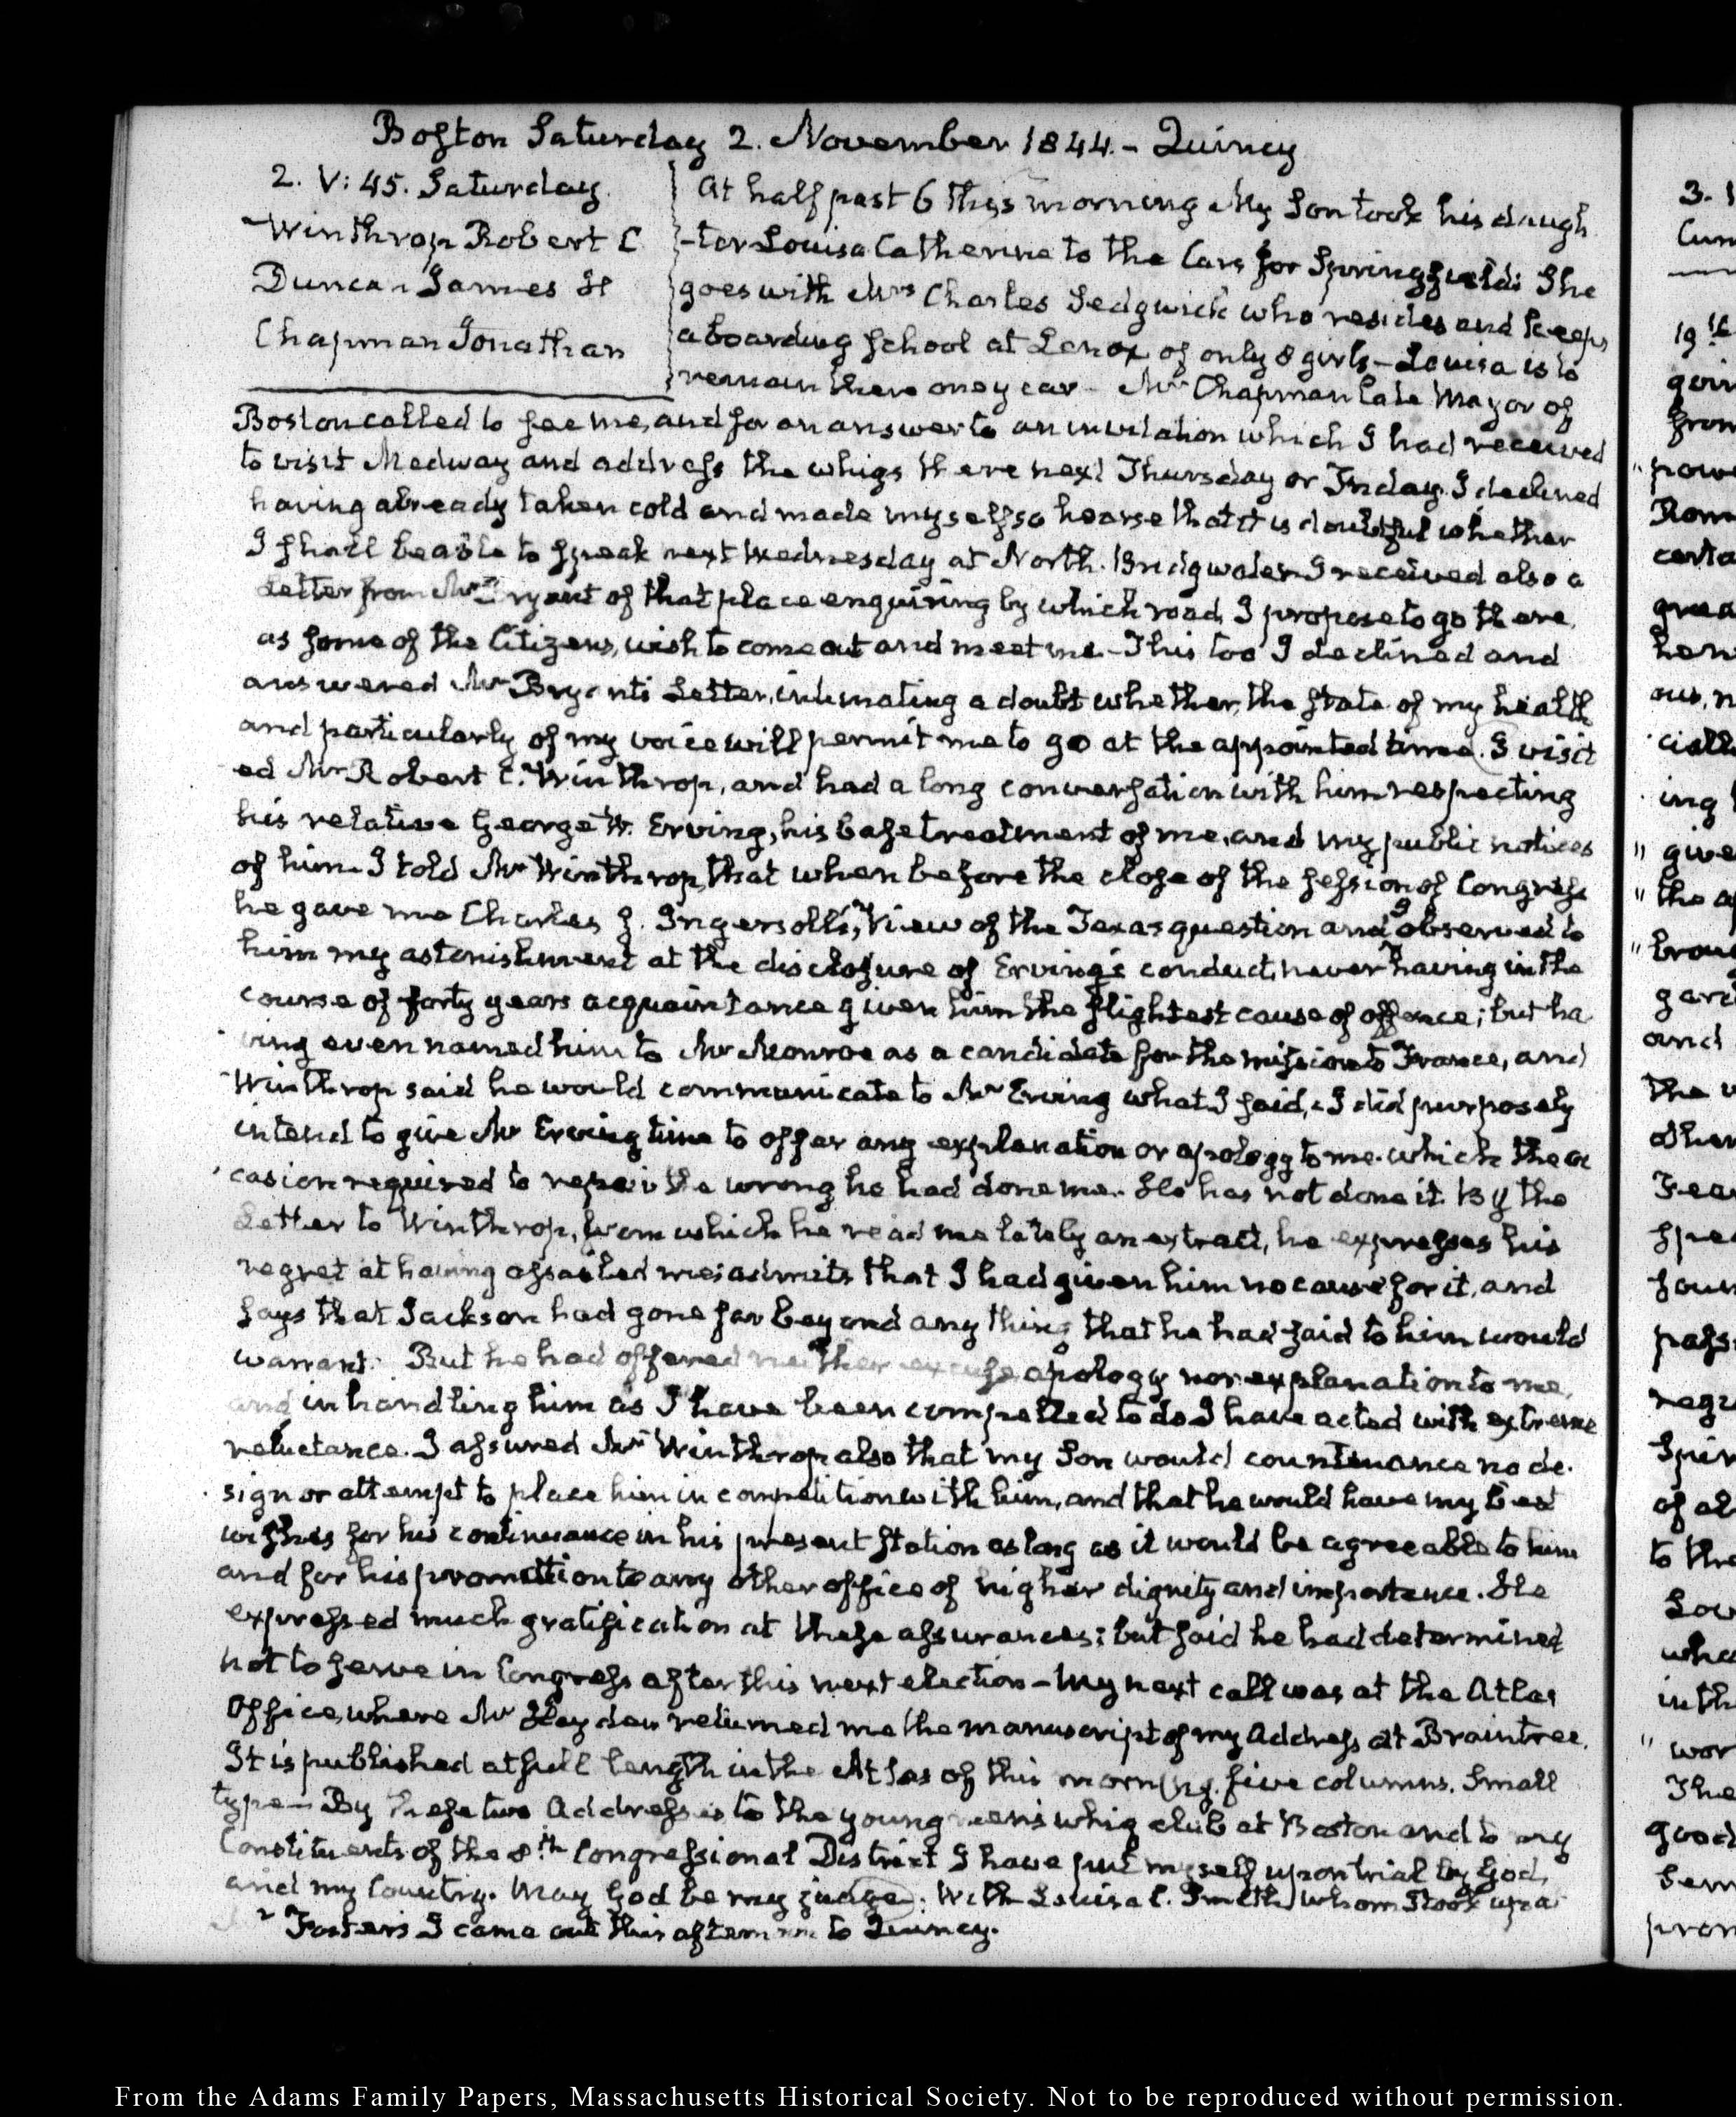 Boston Saturday 2. November 1844.- Quincy
2. V: 45. Saturday.
Winthrop Robert C
Duncan James H
Chapman Jonathan
At half past 6 this morning My Son took his daugh
-ter Louisa Catherine to the Cars for Springfield: She
goes with Mrs Charles Sedgwick who resides and keeps
a boarding School at Lenox of only 8 girls - Louisa is to
remain there one year - Mr Chapman late Mayor of
Boston called to see me, and for an answer to an invitation which I had received
to visit Medway and address the whigs there next Thursday or Friday. I declined
having already taken cold and made myself so hoarse that it is doubtful whether
I shall be able to speak next Wednesday at North. Bridgwater. I received also a
Letter from Mr Bryant of that place enquiring by which road, I propose to go there,
as some of the Citizens, wish to come out and meet me - This too I declined and
answered Mr Bryant's Letter, intimating a doubt whether, the state of my health
and particularly of my voice will permit me to go at the appointed time. I visit
ed Mr Robert C. Winthrop, and had a long conversation with him respecting
his relative George W. Erving, his base treatment of me, and my public notices
of him. I told Mr Winthrop, that when before the close of the session of Congress
he gave me Charles J. Ingersoll's, View of the Texas question and I observed to
him my astonishment at the disclosure of Erving's conduct, never having in the
course of forty years acquaintance given him the slightest cause of offence; but ha
ving even named him to Mr Monroe as a candidate for the mission to France, and
Winthrop said he would communicate to Mr Erving what I said, I did purposely
intend to give Mr Erving time to offer any explanation or apology to me which the oc
casion required to repair the wrong he had done me. He has not done it. By the
Letter to Winthrop, from which he read me lately an extract, he expresses his
regret at having assailed me; admits that I had given him no cause for it, and
says that Jackson had gone far beyond any thing that he had said to him would
warrant. But he had offered neither excuse apology nor explanation to me,
and in handling him as I have been compelled to do I have acted with extreme
reluctance. I assured Mr Winthrop also that my Son would countenance no de-
sign or attempt to place him in competition with him, and that he would have my best
wishes for his continuance in his present station as long as it would be agreeable to him
and for his promotion to any other office of higher dignity and importance. He
expressed much gratification at these assurances; but said he had determined
not to serve in Congress after this next election - My next call was at the Atlas
Office, where Mr Hayden returned me the manuscript of my Address at Braintree.
It is published at full length in the Atlas of this morning. five columns. Small
type - By these two Addresses to the young men's whig club at Boston and to my
Constituents of the 8th Congressional District I have put myself upon trial by God,
and my Country. May God be my judge. With Louisa C. Smith whom I took up a
Foster's I came out this afternoon to Quincy.
3.
19
"
"
"
"
"
From the Adams Family Papers, Massachusetts Historical Society. Not to be reproduced without permission.